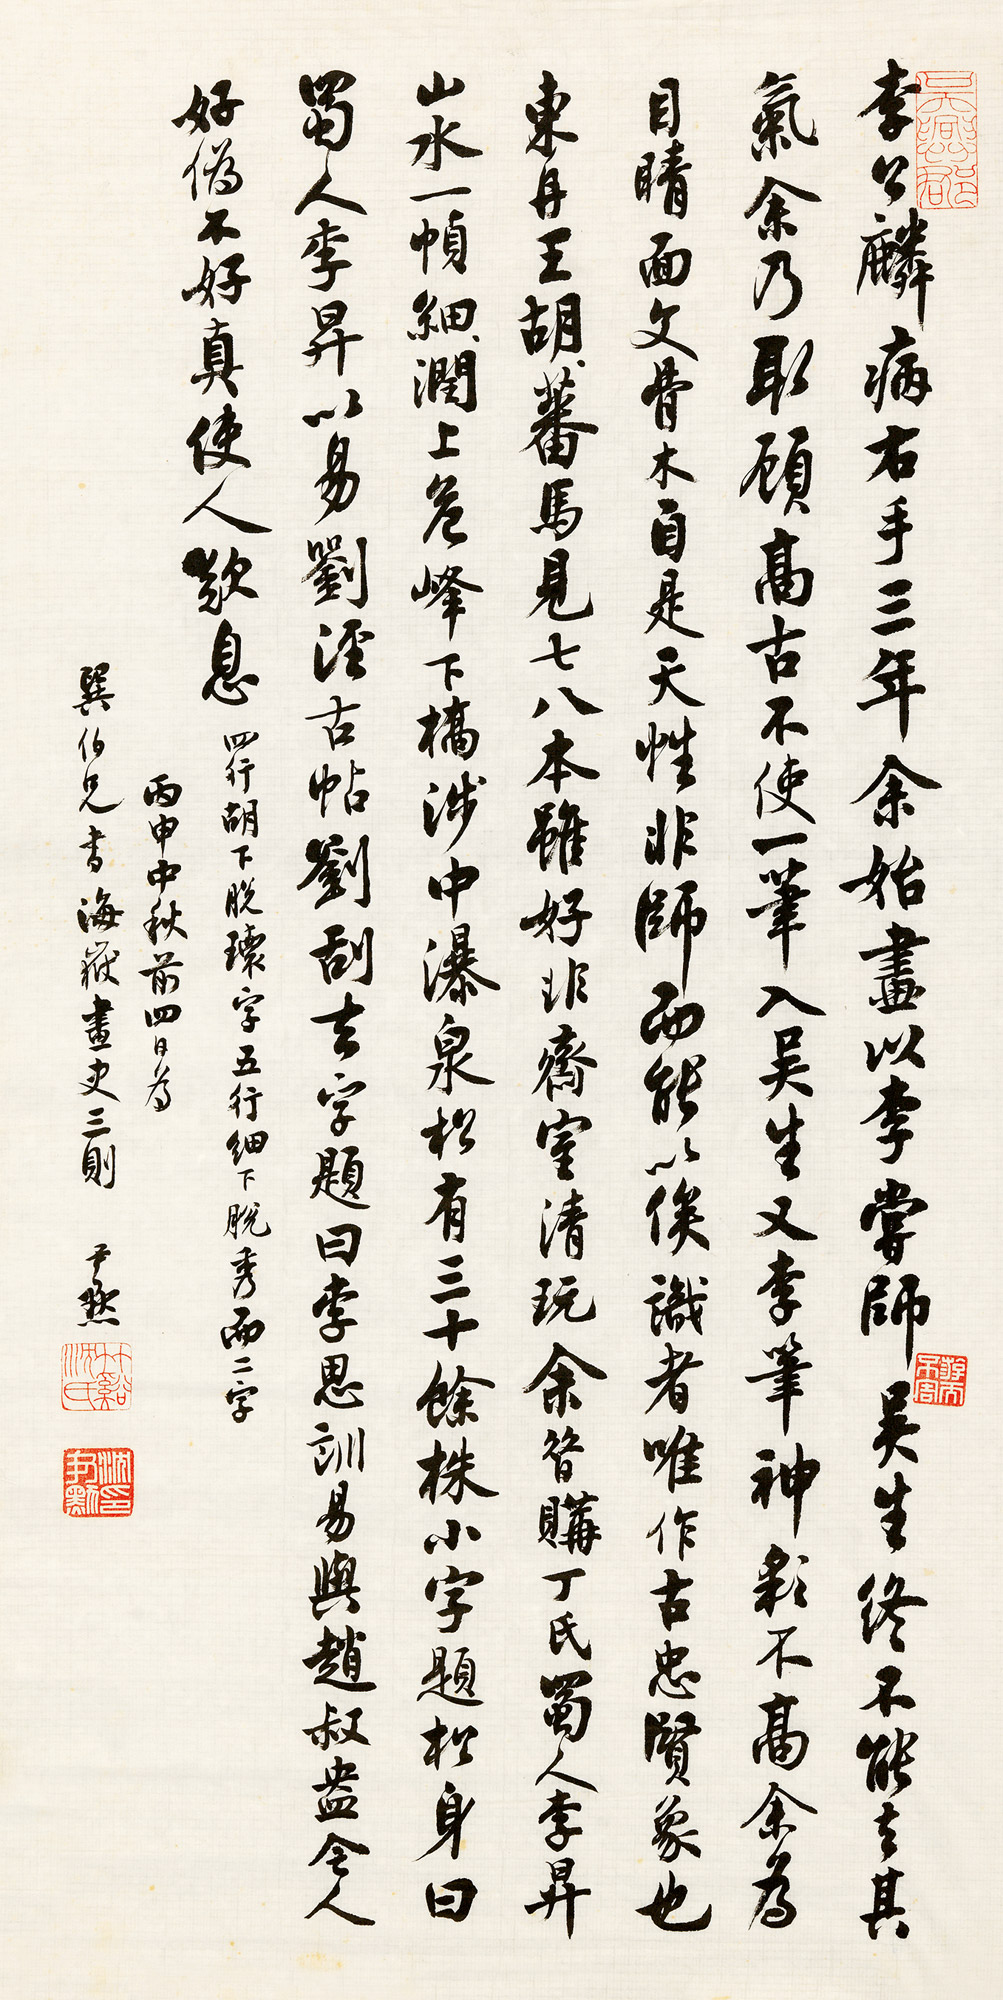 李公麟病右手三年余始畫以李嘗師吳生終不能去其
氣余乃取顧高古不使一筆入吳生又李筆神彩不高余為
目睛面文骨木自是天性非師而能以俟識者唯作古忠賢象也
東丹王胡蕃馬見七八本雖好非齋室清玩余昔購丁氏蜀人李昇
山水一幀細潤上危峰下橋涉中瀑泉松有三十餘株小字題松身曰
蜀人李昇以易劉涇古帖劉刮去字題曰李思訓易與趙叔盎今人
好偽不好真使人歎息
四行胡下脫瓌字五行細下脫秀而二字
丙申中秋前四日為
巽伯兄書海嶽畫史三則 尹默
竹谿沈氏
沈尹默印